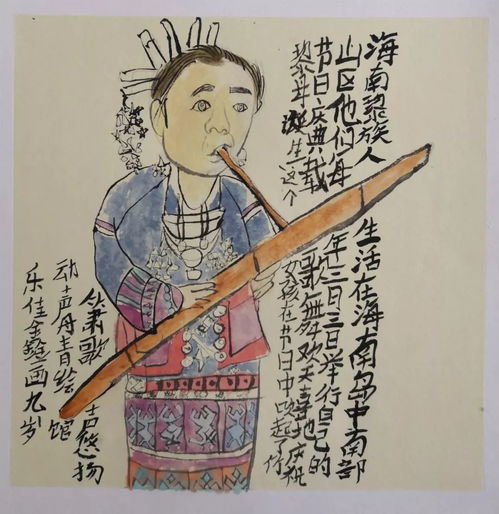 海南黎族人生活在海南岛中南部
山区他们每年三月三日举行自己的
节日庆典载歌舞欢天喜地庆祝
黎母诞生这个女孩在节日中吹起了竹
箫歌声悠扬
动声丹青绘馆
乐佳鑫画九岁